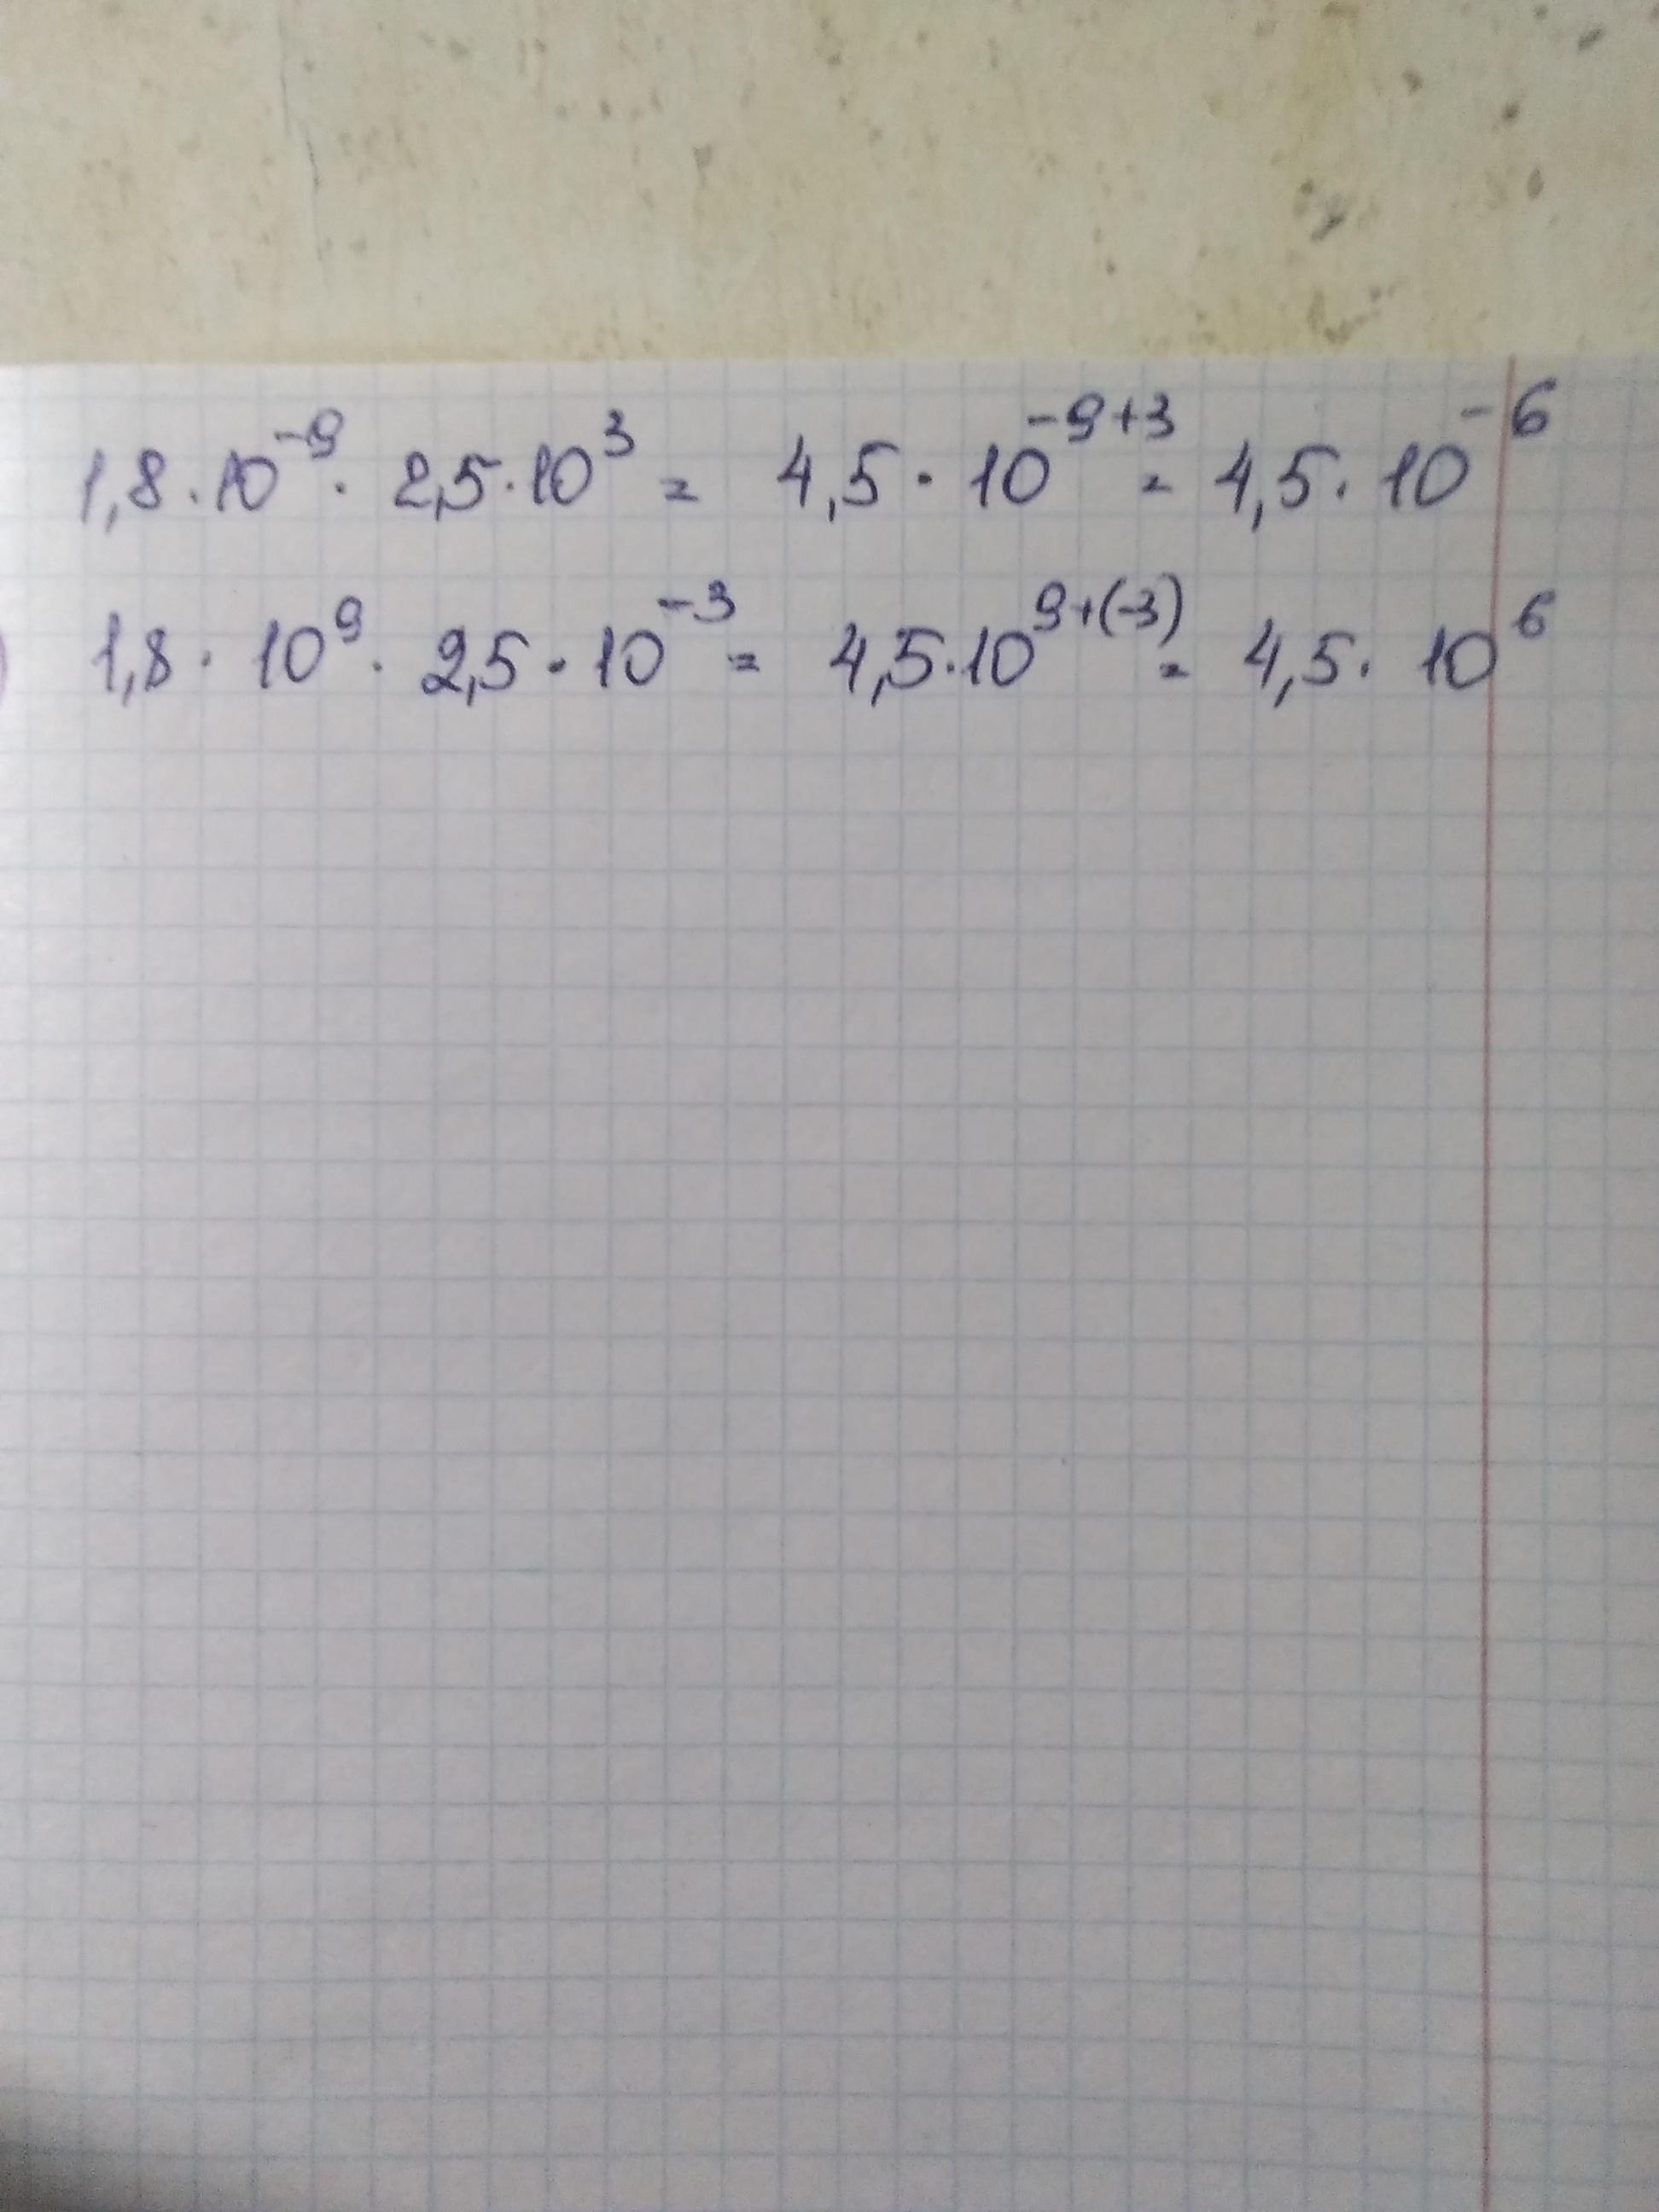 1,8 · 10⁻⁹ · 2,5 · 10³ = 4,5 · 10⁻⁹⁺³ = 4,5 · 10⁻⁶
1,8 · 10⁹ · 2,5 · 10⁻³ = 4,5 · 10⁹⁺⁽⁻³⁾ = 4,5 · 10⁶